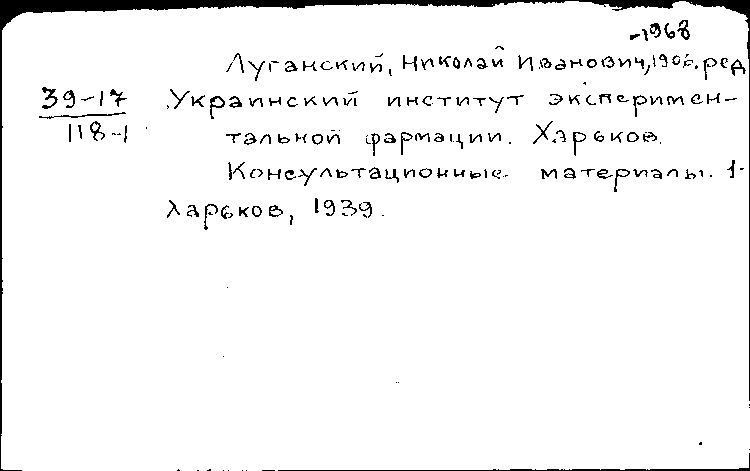 -1968
Луганский, Николай Иванович, 1906. ред
39-17 Украинский институт эксперимен-
118-1 тальной фармации. Харьков.
Консультационные материалы. 1-
Харьков, 1939.